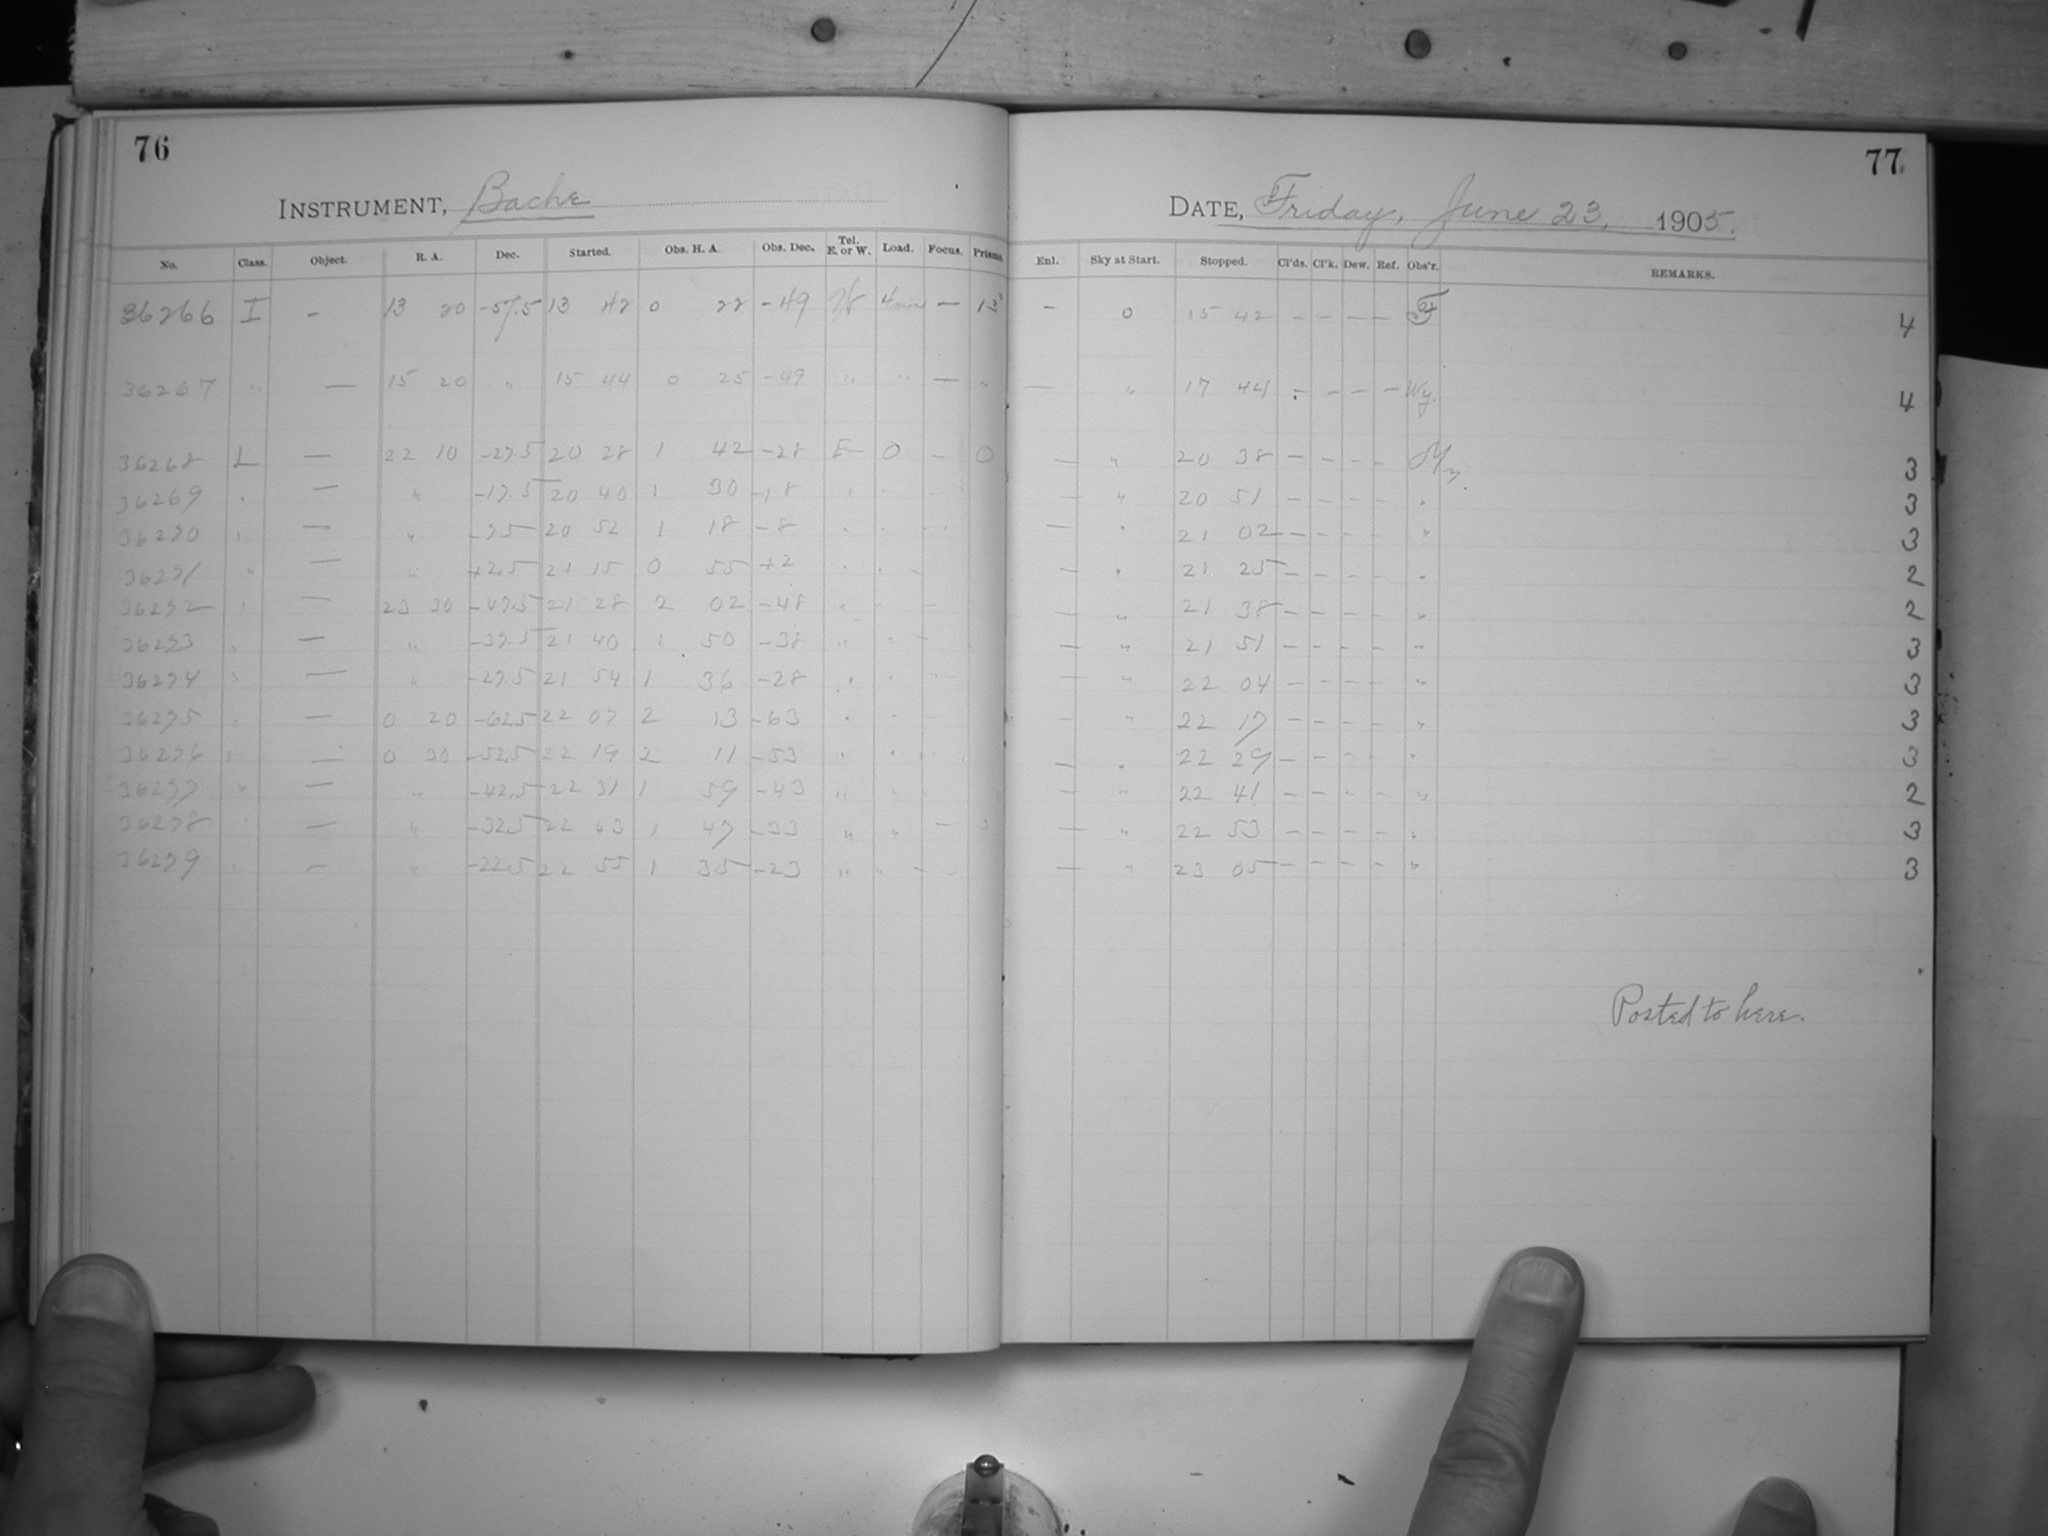 76
INSTRUMENT, Bache
No. Class. Object. R. A. Dec. Started. Obs. H. A. Obs. Dec. Tel. E. or W. Load. Focus. Prisms.
36266 I - 13 20 -57.5 13 42 0 22 -49 W — 13
36267 " — 15 20 " 15 44 0 25 -49 " " — "
36268 L — 22 10 -27.5 20 28 1 42 -28 E 0 - 0
36269 " — " -17.5 20 40 1 30 -18 "
36270 " — " -7.5 20 52 1 18 -8 " "
36271 " — " +2.5 21 15 0 55 +2 " " -
36272 " — 23 30 -47.5 21 28 2 02 -48 " " -
36273 " — " -37.5 21 40 1 50 -38 " " -
36274 " — " -27.5 21 54 1 36 -28 " " -
36275 " — 0 20 -62.5 22 07 2 13 -63 " " -
36276 " — 0 30 -52.5 22 19 2 11 -53 " "
36277 " — " -42.5 22 31 1 59 -43 " "
36278 " — " -32.5 22 43 1 47 -33 " " — "
36279 " — " -22.5 22 55 1 35 -23 " " - "
77
DATE, Friday, June 23, 1905.
Enl. Sky at Start. Stopped. Cl'ds. Cl'k. Dew. Ref. Obs'r. REMARKS.
— 0 15 42 - - - - 4
— " 17 44 - - - - Wy. 4
— " 20 38 - - - - 3
— " 20 51 - - - - " 3
— " 21 02 - - - - " 3
— " 21 25 - - - - " 2
— " 21 38 - - - - " 2
— " 21 51 - - - - " 3
— " 22 04 - - - - " 3
— " 22 17 - - - - " 3
— " 22 29 - - - - " 3
— " 22 41 - - - - " 2
— " 22 53 - - - - " 3
— " 23 05 - - - - " 3
Posted to here.